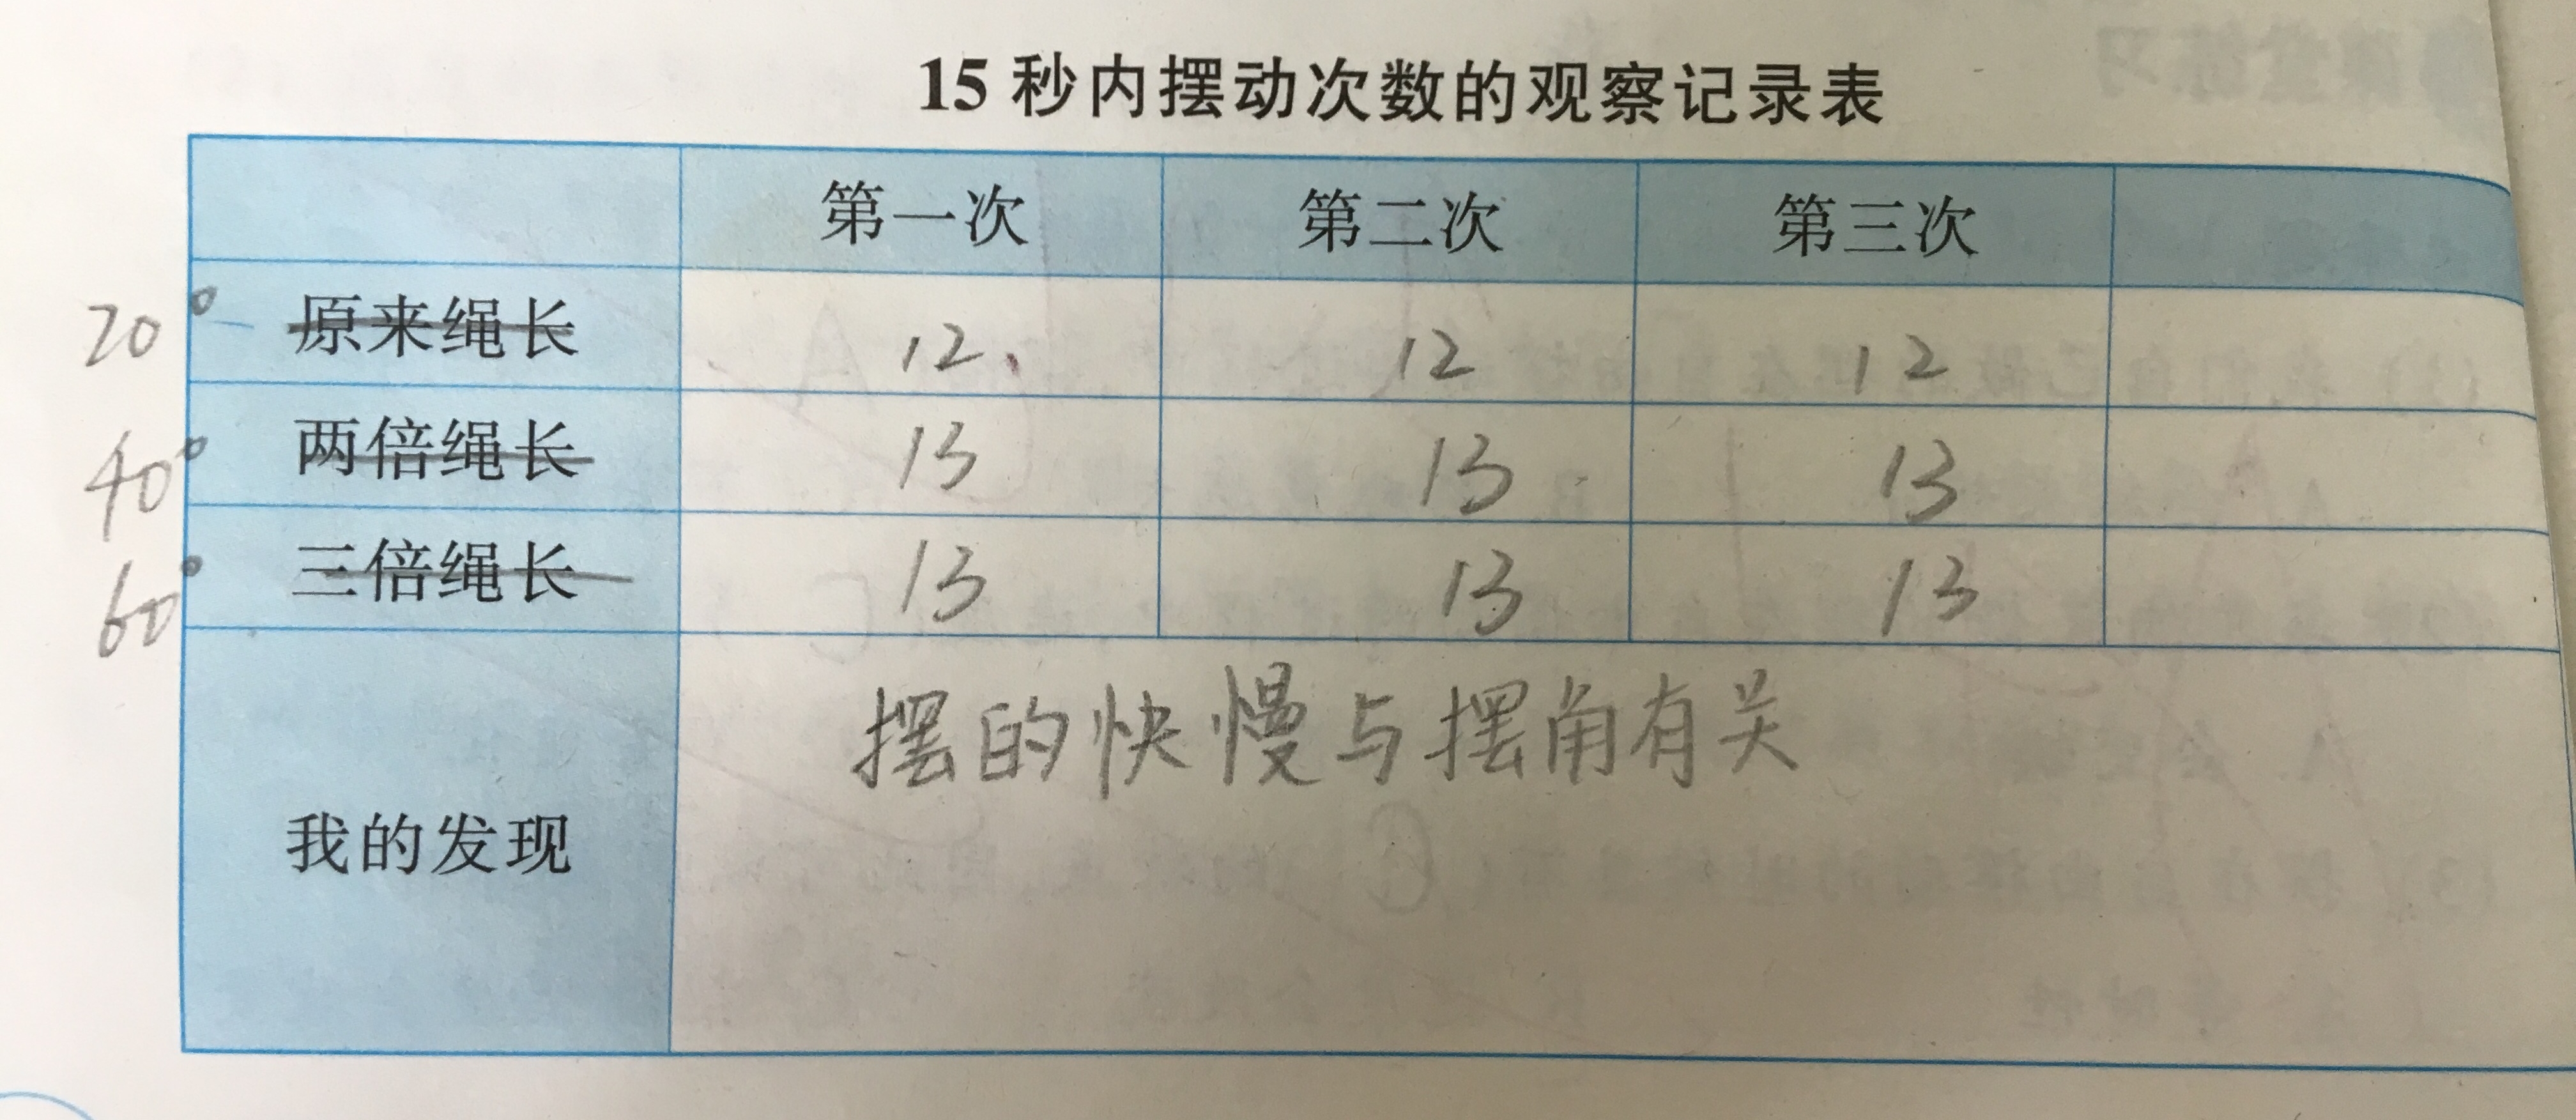 15秒内摆动次数的观察记录表
第一次 第二次 第三次
20° 原来绳长 12. 12 12
40° 两倍绳长 13 13 13
60° 三倍绳长 13 13 13
我的发现 摆的快慢与摆角有关